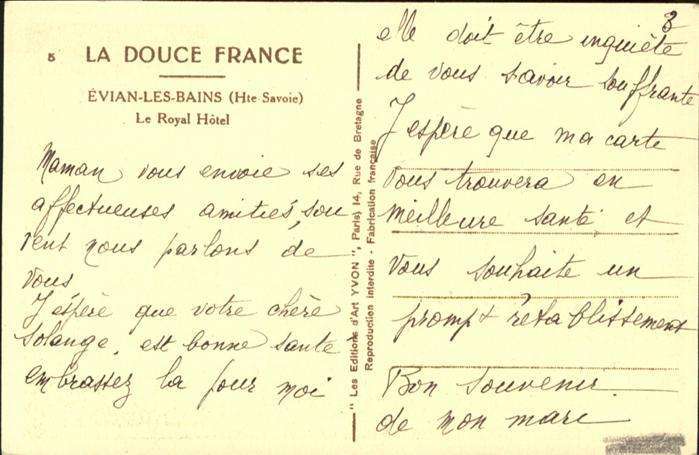 5 LA DOUCE FRANCE
ÉVIAN-LES-BAINS (Hte Savoie)
Le Royal Hôtel
Maman vous envoie ses
affectueuses amitiés, sou
vent nous parlons de
vous
J'espère que votre chère
Solange, est bonne santé
embrassez la pour moi
" Les Editions d'Art YVON ", Paris) 14, Rue de Bretagne
Reproduction interdite - Fabrication française
3
elle doit être inquiète
de vous savoir souffrante
J'espère que ma carte
vous trouvera en
meilleure santé et
vous souhaite un
prompt rétablissement
Bon souvenir
de mon mari